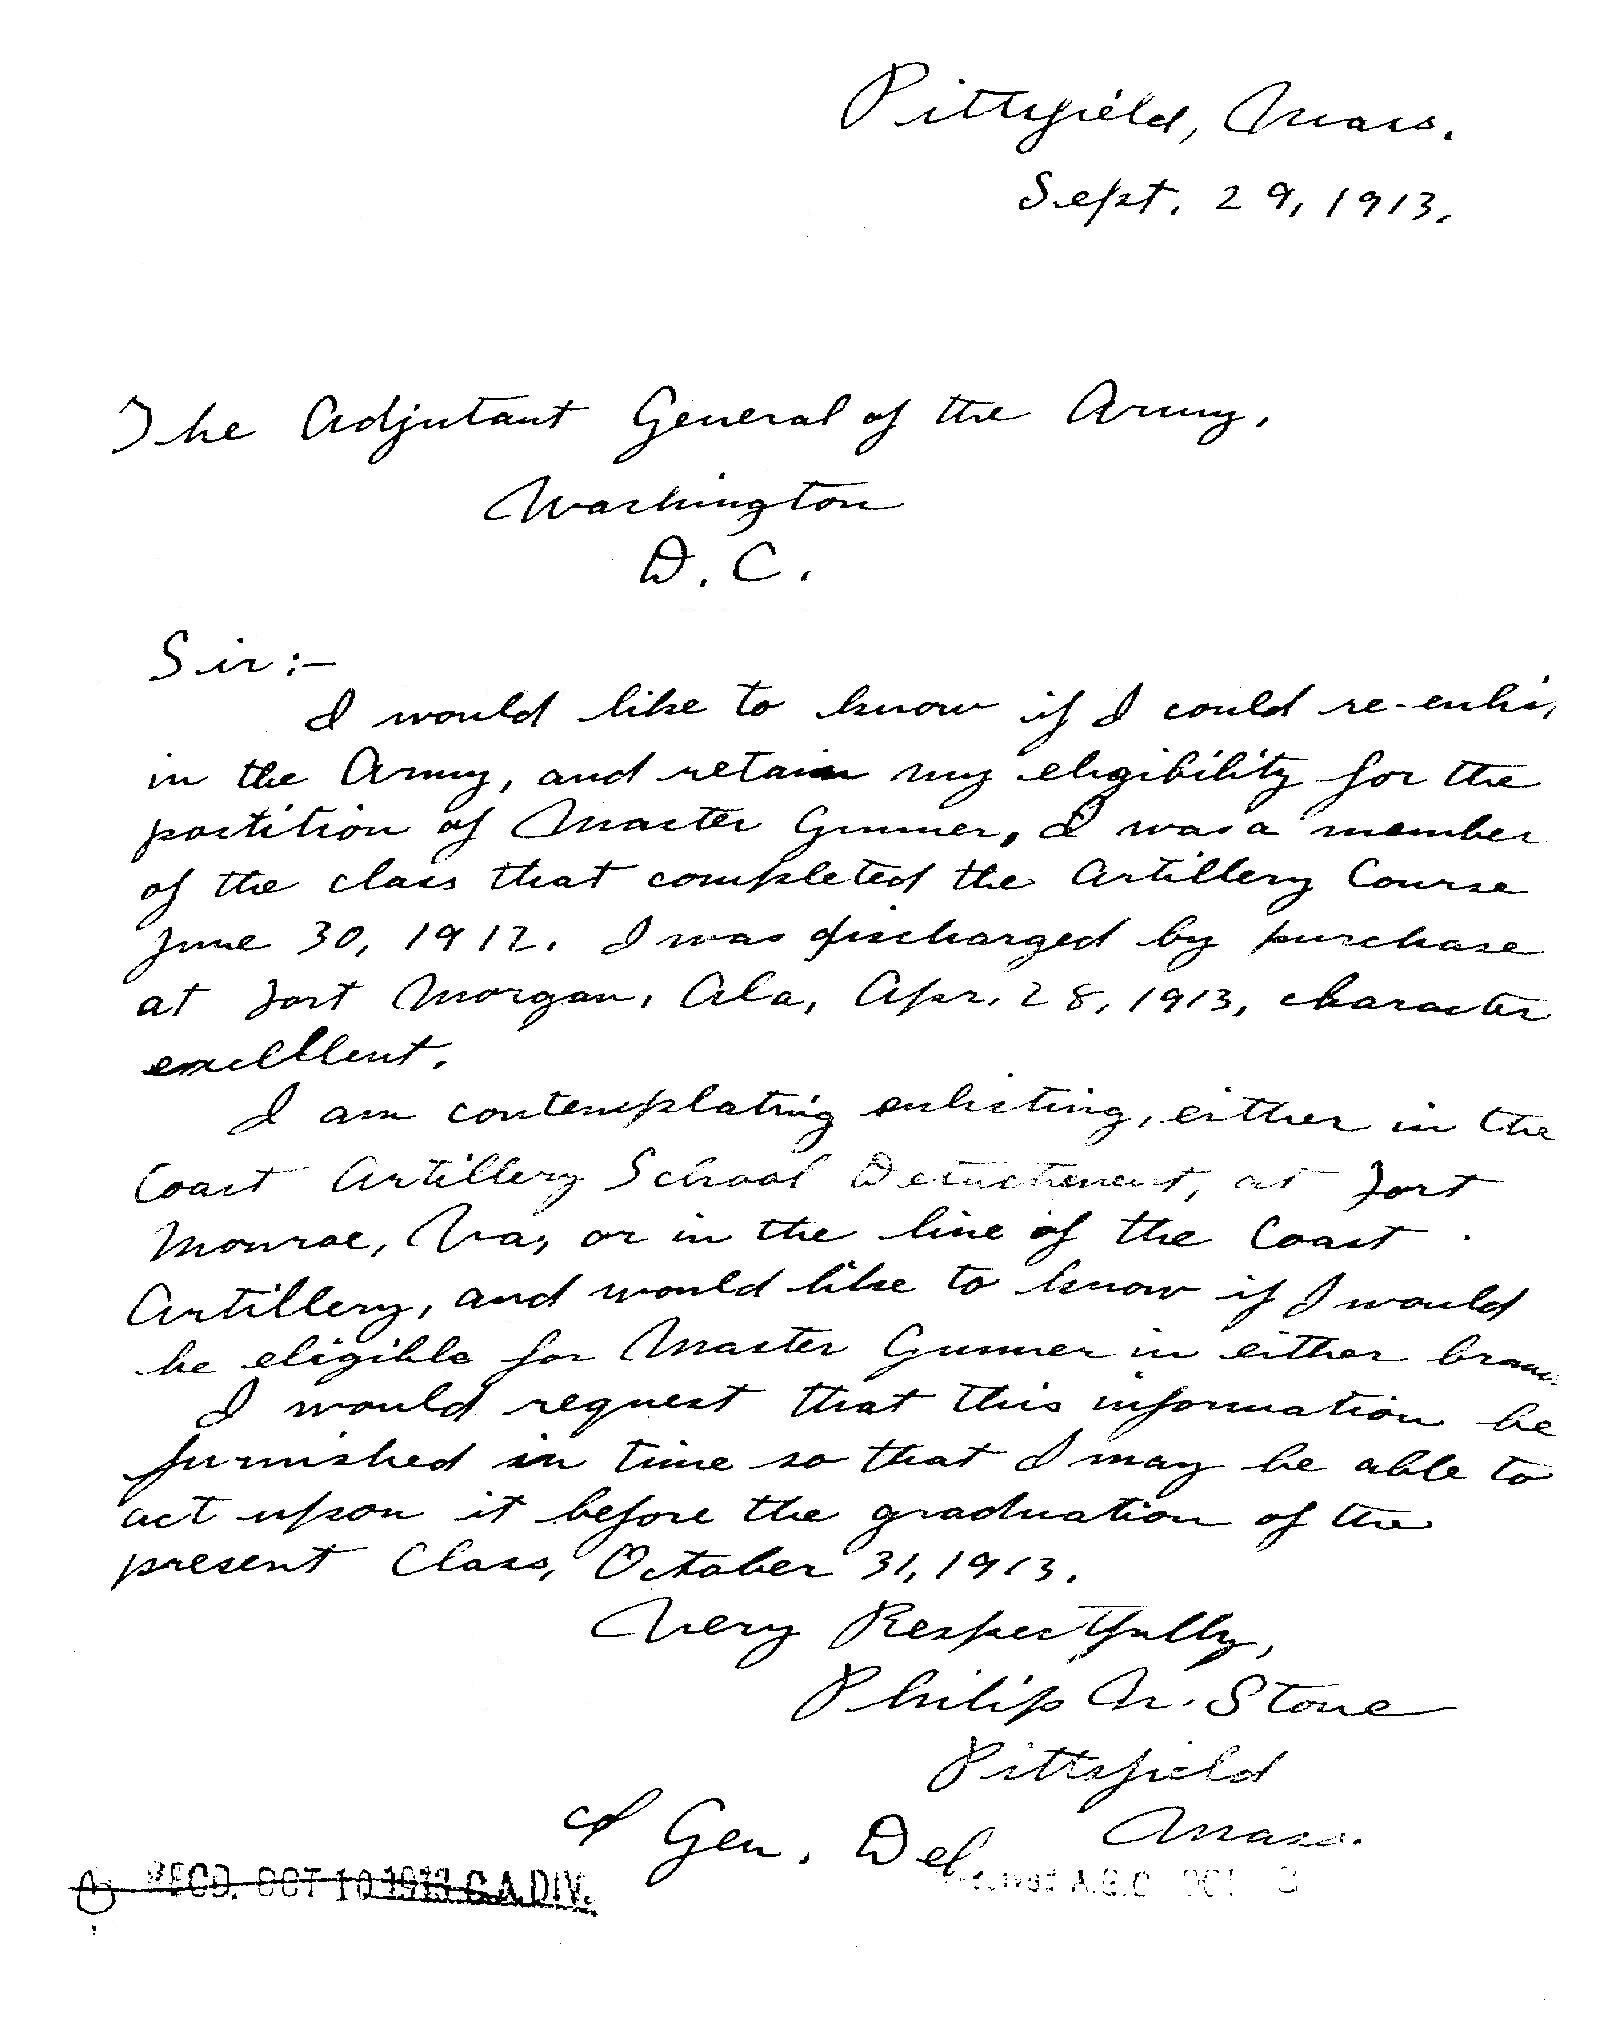 Pittsfield, Mass.
Sept. 29, 1913.
The Adjutant General of the Army,
Washington
D. C.
Sir:-
I would like to know if I could re-enlis
in the Army, and retain my eligibility for the
postition of Master Gunner, I was a member
of the class that completed the Artillery Course
June 30, 1912. I was discharged by purchase
at Fort Morgan, Ala, Apr. 28, 1913, character
excellent.
I am contemplating enlisting, either in the
Coast Artillery School Detachement, at Fort
Monroe, Va, or in the line of the Coast
Artillery, and would like to know if I would
be eligible for Master Gunner in either branc
I would request that this information be
furnished in time so that I may be able to
act upon it before the graduation of the
present Class, October 31, 1913.
Very Respectfully,
Philip M. Stone
Pittsfield
Mass.
Gen. Del.
REC'D. OCT 10 1913 C.A. DIV.
A.G.O. OCT 3